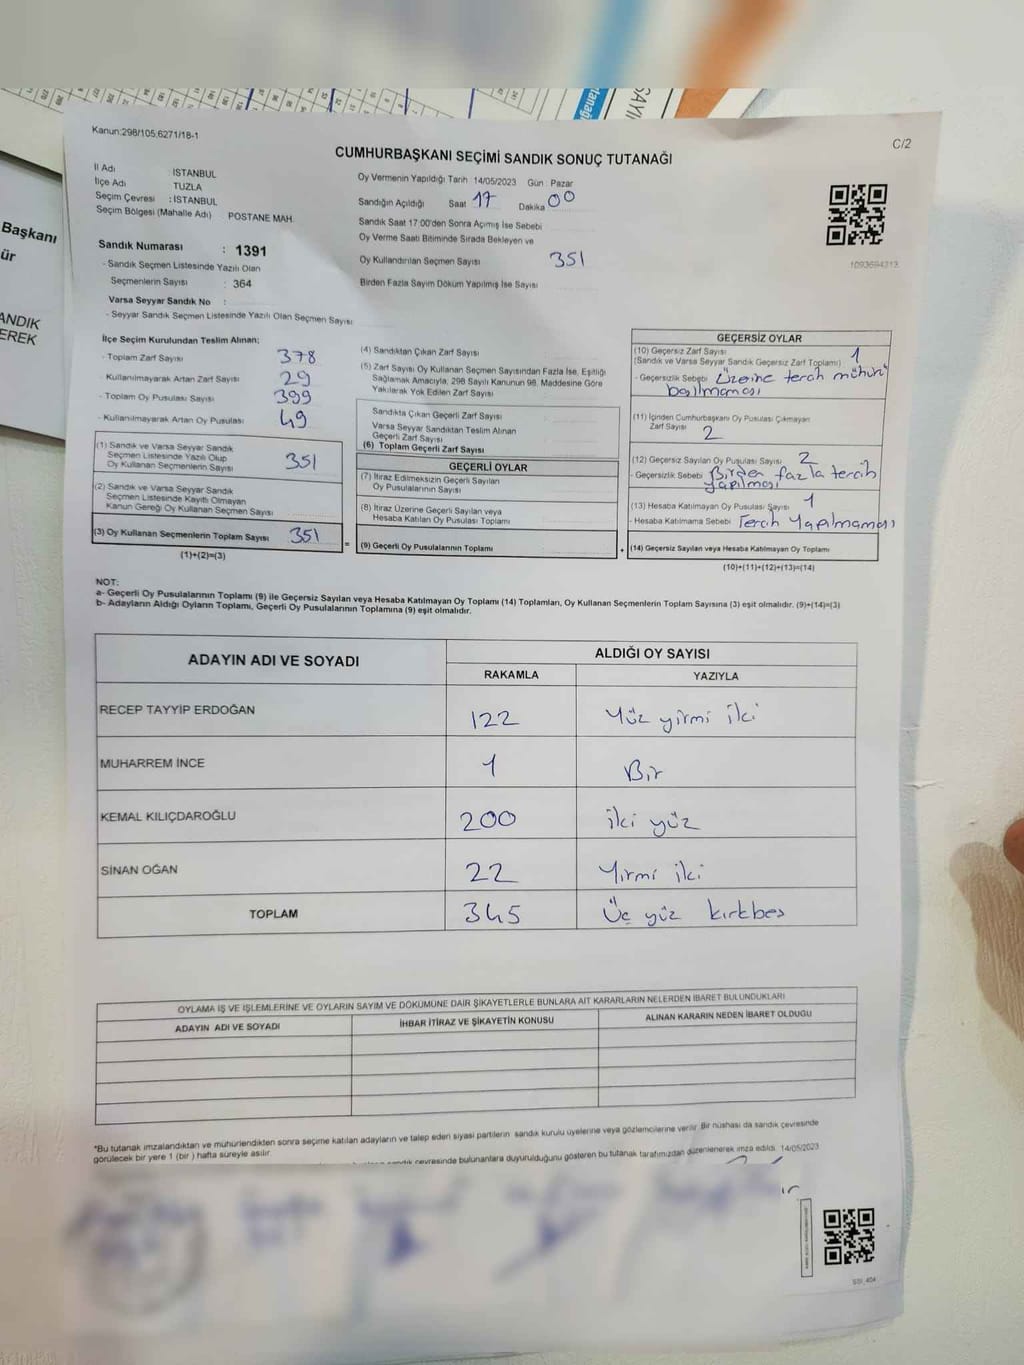 Kanun:298/105,6271/18-1
C/2
CUMHURBAŞKANI SEÇİMİ SANDIK SONUÇ TUTANAĞI
İl Adı : İSTANBUL
İlçe Adı TUZLA
Seçim Çevresi : İSTANBUL
Seçim Bölgesi (Mahalle Adı) POSTANE MAH.
Sandık Numarası : 1391
- Sandık Seçmen Listesinde Yazılı Olan
Seçmenlerin Sayısı : 364
Varsa Seyyar Sandık No :
- Seyyar Sandık Seçmen Listesinde Yazılı Olan Seçmen Sayısı
Oy Vermenin Yapıldığı Tarih 14/05/2023 Gün : Pazar
Sandığın Açıldığı Saat 17 Dakika 00
Sandık Saat 17:00'den Sonra Açımış İse Sebebi
Oy Verme Saati Bitiminde Sırada Bekleyen ve
Oy Kullandırılan Seçmen Sayısı 351
Birden Fazla Sayım Döküm Yapılmış İse Sayısı
1093694313
Başkanı
ür
ANDIK
EREK
tanağı
SAYI
İlçe Seçim Kurulundan Teslim Alınan;
- Toplam Zarf Sayısı 378
- Kullanılmayarak Artan Zarf Sayısı 29
- Toplam Oy Pusulası Sayısı 399
- Kullanılmayarak Artan Oy Pusulası 49
(1) Sandık ve Varsa Seyyar Sandık
Seçmen Listesinde Yazılı Olup
Oy Kullanan Seçmenlerin Sayısı 351
(2) Sandık ve Varsa Seyyar Sandık
Seçmen Listesinde Kayıtlı Olmayan
Kanun Gereği Oy Kullanan Seçmen Sayısı
(3) Oy Kullanan Seçmenlerin Toplam Sayısı 351
(1)+(2)=(3)
=
(4) Sandıktan Çıkan Zarf Sayısı
(5) Zarf Sayısı Oy Kullanan Seçmen Sayısından Fazla İse, Eşitliği
Sağlamak Amacıyla, 298 Sayılı Kanunun 98. Maddesine Göre
Yakılarak Yok Edilen Zarf Sayısı
Sandıkta Çıkan Geçerli Zarf Sayısı
Varsa Seyyar Sandıktan Teslim Alınan
Geçerli Zarf Sayısı
(6) Toplam Geçerli Zarf Sayısı
GEÇERLİ OYLAR
(7) İtiraz Edilmeksizin Geçerli Sayılan
Oy Pusulalarının Sayısı
(8) İtiraz Üzerine Geçerli Sayılan veya
Hesaba Katılan Oy Pusulası Toplamı
(9) Geçerli Oy Pusulalarının Toplamı
+
GEÇERSİZ OYLAR
(10) Geçersiz Zarf Sayısı 1
(Sandık ve Varsa Seyyar Sandık Geçersiz Zarf Toplamı)
- Geçersizlik Sebebi Üzerine tercih mührü
basılmaması
(11) İçinden Cumhurbaşkanı Oy Pusulası Çıkmayan
Zarf Sayısı 2
(12) Geçersiz Sayılan Oy Pusulası Sayısı 2
- Geçersizlik Sebebi Birden fazla tercih
yapılması
(13) Hesaba Katılmayan Oy Pusulası Sayısı 1
- Hesaba Katılmama Sebebi Tercih Yapılmaması
(14) Geçersiz Sayılan veya Hesaba Katılmayan Oy Toplamı
(10)+(11)+(12)+(13)=(14)
NOT:
a- Geçerli Oy Pusulalarının Toplamı (9) ile Geçersiz Sayılan veya Hesaba Katılmayan Oy Toplamı (14) Toplamları, Oy Kullanan Seçmenlerin Toplam Sayısına (3) eşit olmalıdır. (9)+(14)=(3)
b- Adayların Aldığı Oyların Toplamı, Geçerli Oy Pusulalarının Toplamına (9) eşit olmalıdır.
ADAYIN ADI VE SOYADI
ALDIĞI OY SAYISI
RAKAMLA YAZIYLA
RECEP TAYYİP ERDOĞAN 122 Yüz yirmi iki
MUHARREM İNCE 1 Bir
KEMAL KILIÇDAROĞLU 200 iki yüz
SİNAN OĞAN 22 Yirmi iki
TOPLAM 345 Üç yüz kırkbeş
OYLAMA İŞ VE İŞLEMLERİNE VE OYLARIN SAYIM VE DÖKÜMÜNE DAİR ŞİKAYETLERLE BUNLARA AİT KARARLARIN NELERDEN İBARET BULUNDUKLARI
ADAYIN ADI VE SOYADI İHBAR İTİRAZ VE ŞİKAYETİN KONUSU ALINAN KARARIN NEDEN İBARET OLDUĞU
*Bu tutanak imzalandıktan ve mühürlendikten sonra seçime katılan adayların ve talep eden siyasi partilerin sandık kurulu üyelerine veya gözlemcilerine verilir. Bir nüshası da sandık çevresinde
görülecek bir yere 1 (bir ) hafta süreyle asılır.
sandık çevresinde bulunanlara duyurulduğunu gösteren bu tutanak tarafımızdan düzenlenerek imza edildi. 14/05/2023
SSI_404